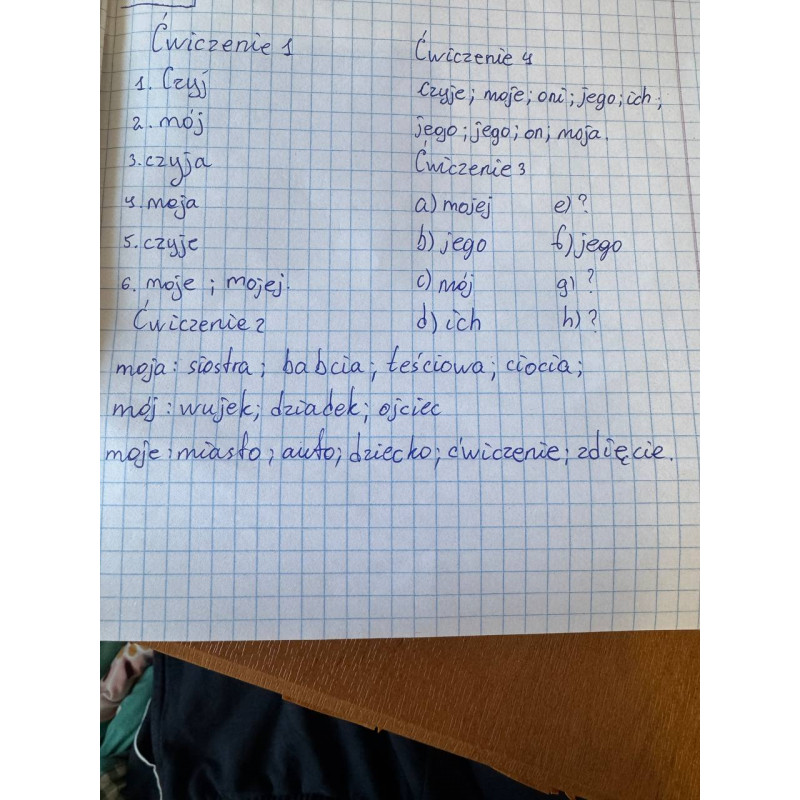 Ćwiczenie 1
1. Czyj
2. mój
3. czyja
4. moja
5. czyje
6. moje ; mojej.
Ćwiczenie 2
moja: siostra; babcia; teściowa; ciocia;
mój: wujek; dziadek; ojciec
moje: miasto; auto; dziecko; ćwiczenie; zdięcie.
Ćwiczenie 4
czyje; moje; oni; jego; ich;
jego; jego; on; moja.
Ćwiczenie 3
a) mojej
b) jego
c) mój
d) ich
e) ?
f) jego
g) ?
h) ?